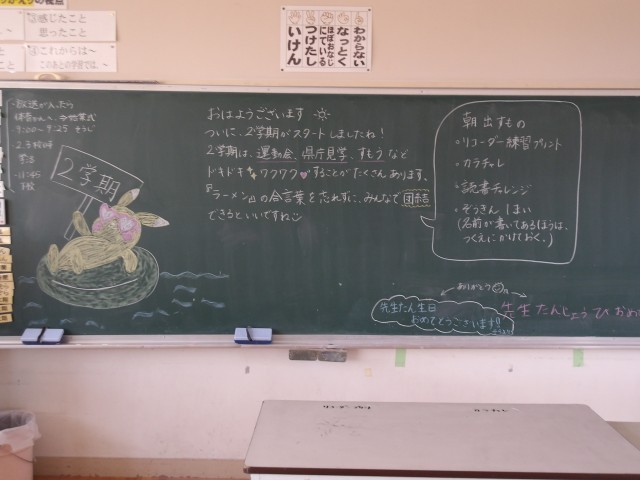 ③感じたこと
思ったこと
④これからは～
このあとの学習では、～
わからない
なっとく
ほぼおなじ
にている
つけたし
いけん
放送が入ったら
9:00～9:25 そうじ
2. 3校時
11:45
下校
2学期
おはようございます
ついに、2学期がスタートしましたね！
2学期は、運動会、県庁見学、すもうなど
ドキドキ ワクワク することがたくさんあります。
『ラーメン』の合言葉を忘れずに、みんなで団結
できるといいですね
朝出すもの
・リコーダー練習プリント
・カラチャレ
・読書チャレンジ
・ぞうきん しまい
(名前が書いてあるほうは、
つくえにかけておく。)
ありがとう
先生たん生日
おめでとうございます!!
先生 たんじょうび おめ